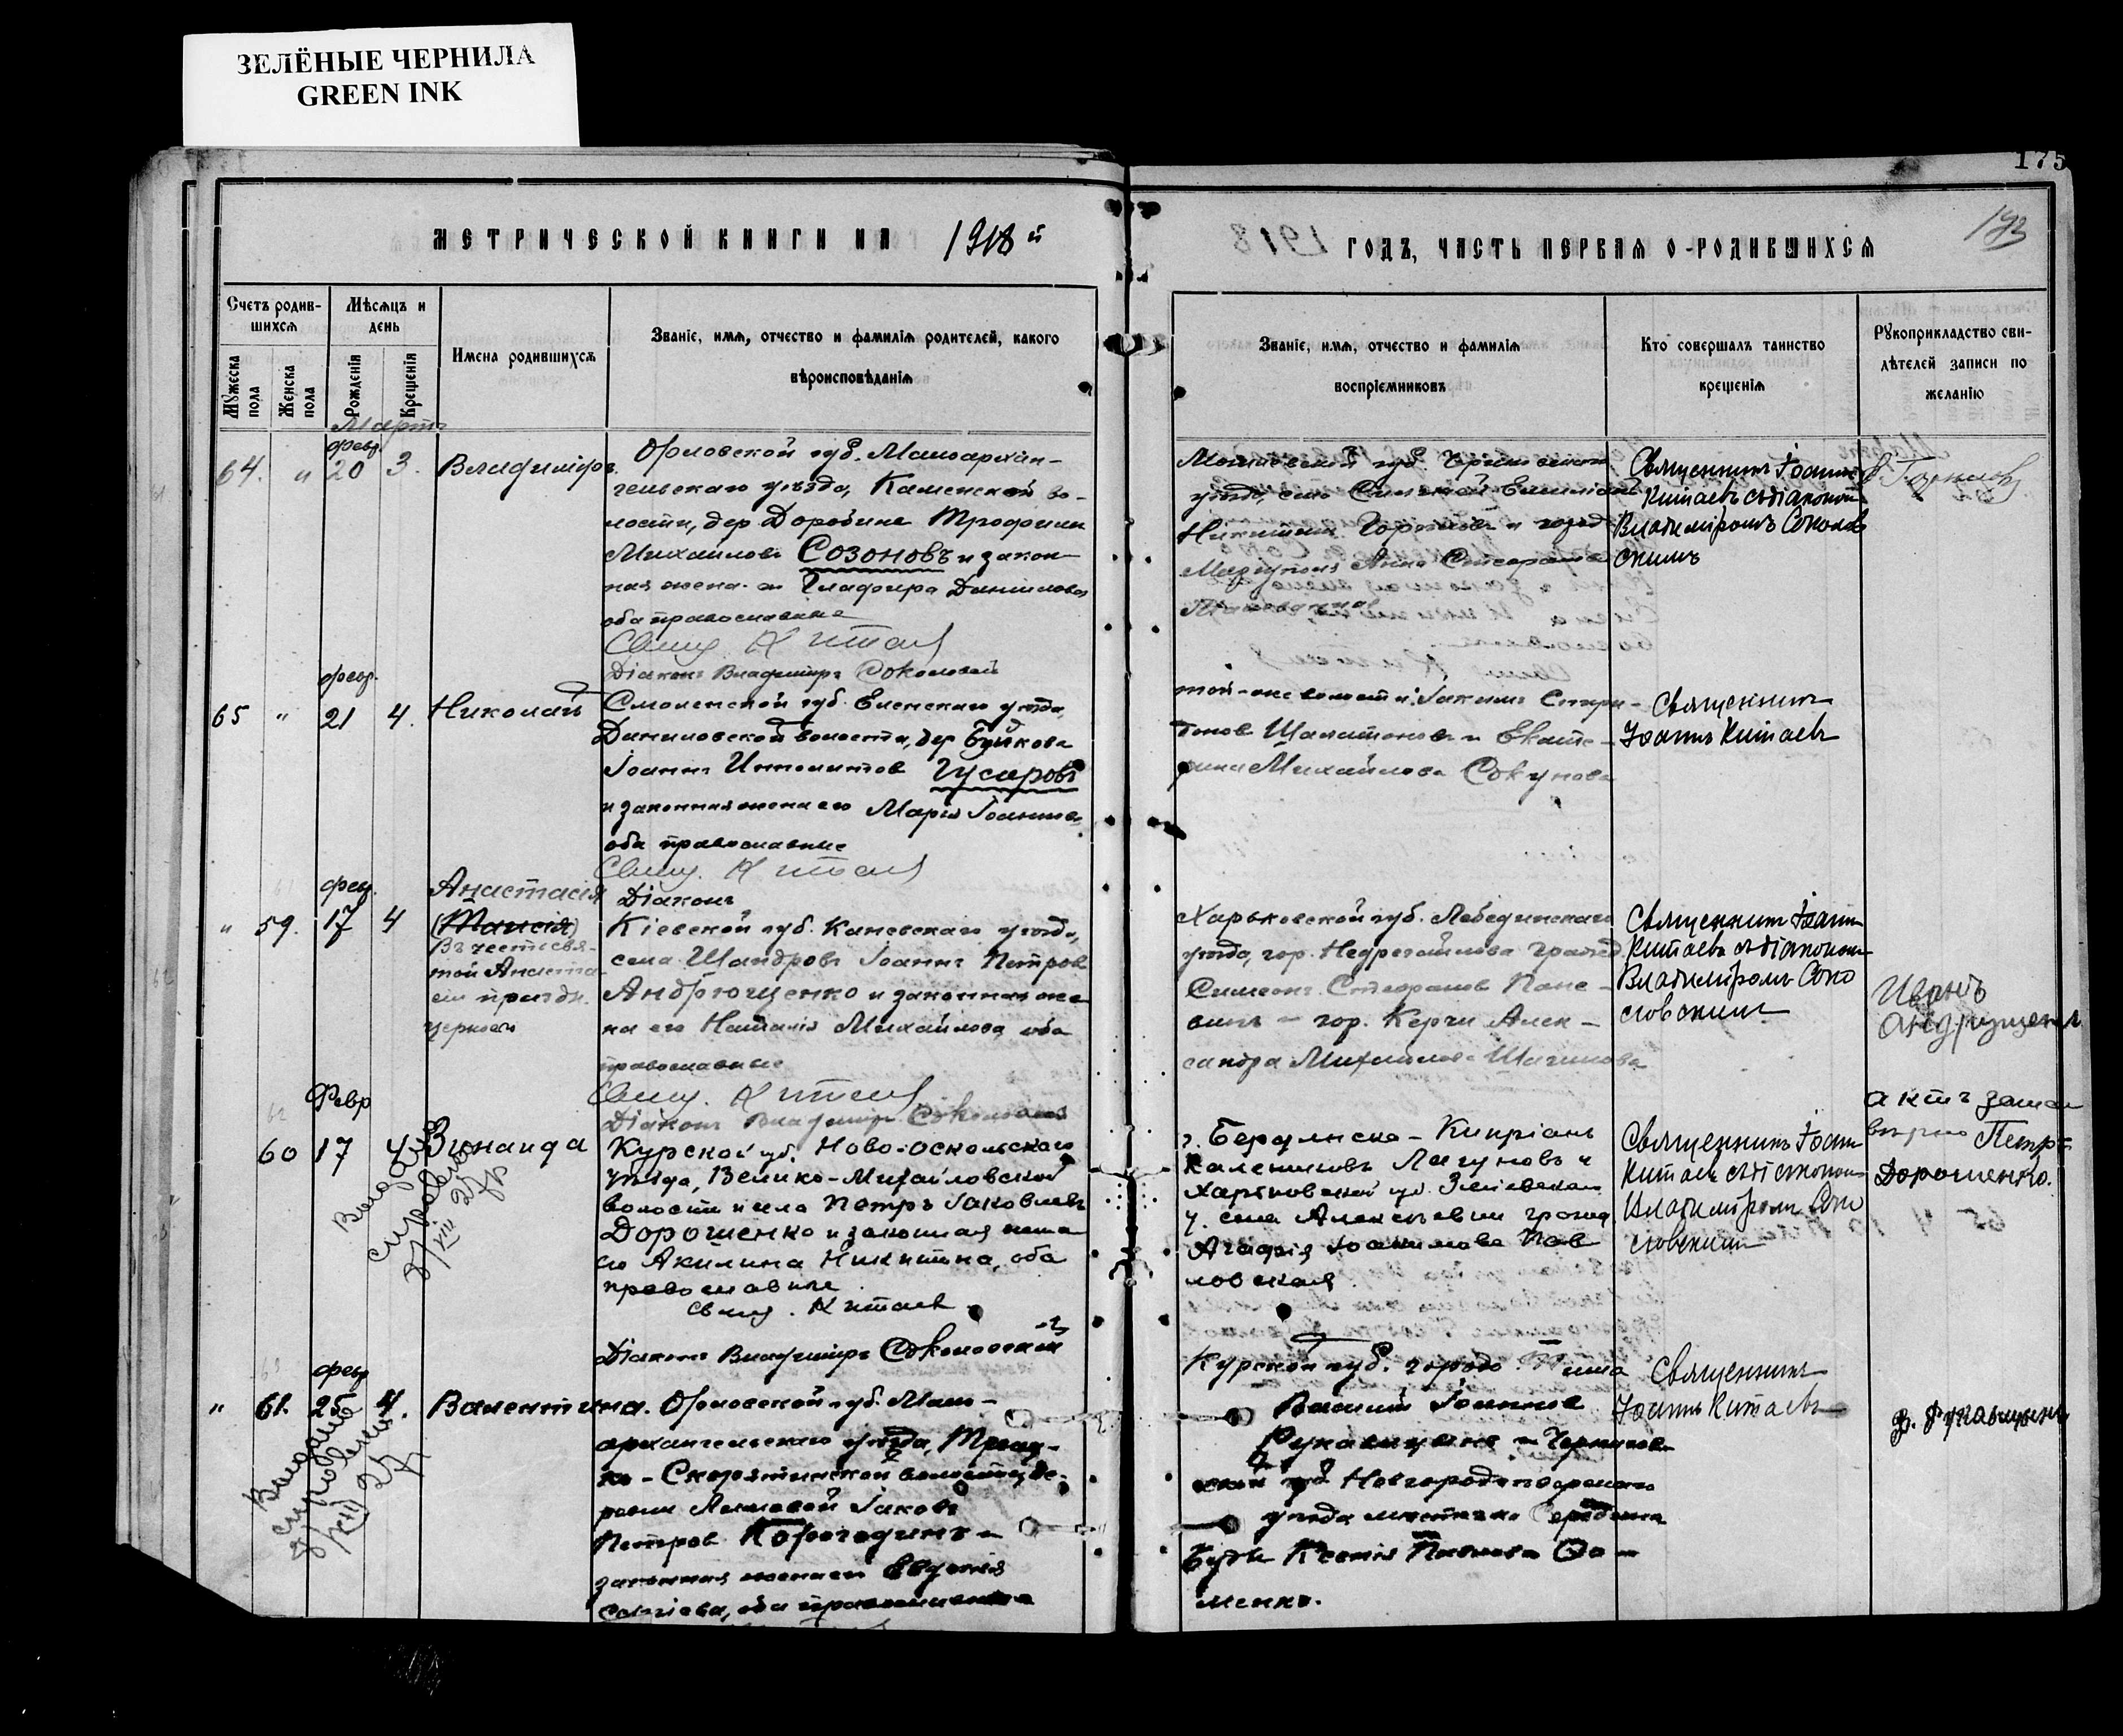 ЗЕЛЁНЫЕ ЧЕРНИЛА
GREEN INK
175
МЕТРИЧЕСКОЙ КНИГИ НА 1918 й
ГОДЪ, ЧАСТЬ ПЕРВАЯ О РОДИВШИХСЯ
Счетъ родив-
шихся
Мѣсяцъ и
день
Мужеска
пола
Женска
пола
Рожденія
Крещенія
Имена родившихся
Званіе, имя, отчество и фамилія родителей, какого
вѣроисповѣданія
Званіе, имя, отчество и фамилія
воспріемниковъ
Кто совершалъ таинство
крещенія
Рукоприкладство сви-
дѣтелей записи по
желанію
Мартъ
февр.
64. " 20 3. Владиміръ
Орловской губ. Малоархан-
гельскаго уѣзда, Каменской во-
лости, дер. Доробине Трофимъ
Михаиловъ Созоновъ и закон-
ная жена Глафира Даніилова
оба православные
Свящ. Китаев
Діаконъ Владиміръ Соколовскій
уѣзда, село
Никитинъ и
Анна
Священникъ Іоаннъ
Китаевъ съ діакономъ
Владиміромъ Соколов
скимъ
февр.
65 " 21 4. Николай
Смоленской губ. Ельнскаго уѣзда,
Даниловской волости, дер. Буйкова
Іоаннъ Ипполитов Гусаровъ
и законная жена его Марія Іоаннова
оба православные
Свящ. Китаев
Діаконъ
той-же волости: Іакимъ Спири-
донов и Екате-
рина Михайлова Сокунова
Священникъ
Іоаннъ Китаевъ
фев.
" 59. 17 4
Анастасія
(Таисія)
Въ честь свя-
той Анаста-
сіи праздн.
церкви
Кіевской губ. Каневскаго уѣзда,
села Шандровъ Іоаннъ Петров
Андрющенко и законная же
на его Наталія Михайлова, оба
православные
Свящ. Китаев
Діаконъ Владиміръ Соколовскій
Харьковской губ. Лебединскаго
уѣзда, гор. Недригайлова гражд.
Симеонъ Стефанов Пане-
винъ и гор. Керчи Алек-
сандра Михайлова Шагинова
Священникъ Іоанн
Китаевъ съ діакономъ
Владиміромъ Соко
ловскимъ
Иванъ
Андрущенко
Февр
60 17 4 Зинаида
Курской губ. Ново-Оскольскаго
уѣзда, Велико-Михайловской
волости и села Петръ Іаковлевъ
Дорошенко и законная жена
его Акилина Никитина, оба
православные
Свящ. Китаев
Діаконъ Владиміръ Соколовскій
г. Бердянска - Кипріанъ
Калениковъ Лагуновъ и
Харьковской губ. Зміевскаго
у. села Алексѣевки гражд.
Агафія Іоакимова Пав
ловская
Священникъ Іоанн
Китаевъ съ діакономъ
Владиміромъ Соко
ловскимъ
актъ
вѣрно Петръ
Дорошенко.
Выдана
справка
8/XII 27 г.
февр.
" 61. 25 4. Валентина.
Орловской губ. Мало-
архангельскаго уѣзда, Троиц-
ко-Скоротинской волости, де-
ревни Іаковъ
Петров Корогодинъ и
законная жена его Евдокія
Сергіева, оба православные
Курской губ. города Тима
Василій Іоаннов
Рукавицынъ и Чернигов-
ской губ. Новгородсѣверскаго
уѣзда мѣстечка Середина
Буда Ксенія Павлова До-
менко.
Священникъ
Іоаннъ Китаевъ
В. Рукавицынъ
Выдана
справка
8/XII 27 г.